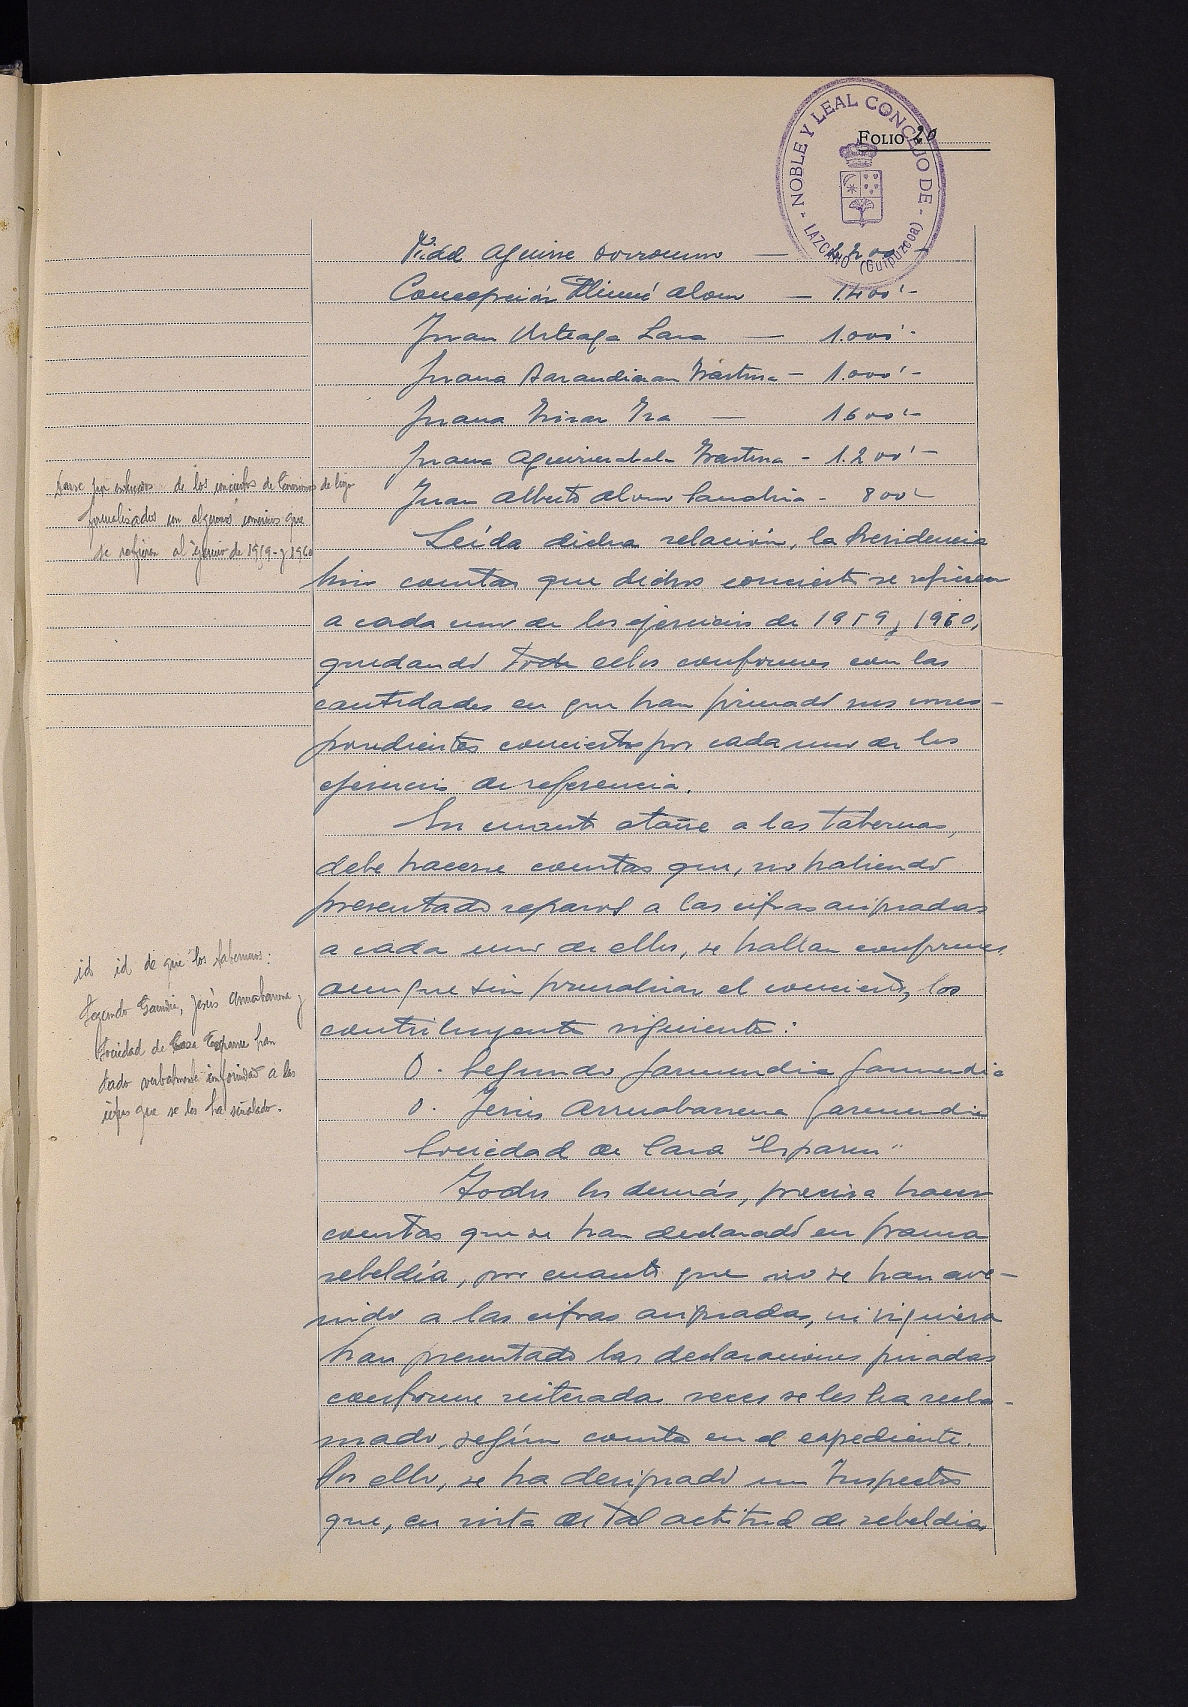 FOLIO 20
- NOBLE Y LEAL CONCEJO DE -
LAZCANO (Guipúzcoa)
Vidal Aguirre — 2.200'-
Concepción — 1.400'-
Juan Urteaga Lasa — 1.000'-
Juana Barandiaran - 1.000'-
Juana — 1.600'-
Juana Aguirrezabala - 1.200'-
Juan Alberto - 800'-
Leída dicha relación, la Presidencia
hizo constar que dichos conciertos se refieren
a cada uno de los ejercicios de 1959 y 1960,
quedando todos ellos conformes con las
cantidades en que han firmado sus corres-
pondientes conciertos por cada uno de los
ejercicios de referencia.
En cuanto atañe a las tabernas,
debe hacerse constar que, no habiendo
presentado reparos a las cifras asignadas
a cada uno de ellos, se hallan conformes
aunque sin formalizar el concierto, los
contribuyentes siguientes:
D. Segundo Garmendia Garmendia
D. Jesús Arruabarrena Garmendia
Sociedad de Caza "Esparru"
Todos los demás, precisa hacer
constar que se han declarado en franca
rebeldía, por cuanto que no se han ave-
nido a las cifras asignadas, ni siquiera
han presentado las declaraciones juradas
conforme reiteradas veces se les ha recla-
mado, según consta en el expediente.
Por ello, se ha designado un Inspector
que, en vista de tal actitud de rebeldía
Darse por enterados de los conciertos de Consumos de lujo
formalizados con algunos vecinos que
se refieren al ejercicio de 1959 y 1960
id id de que los taberneros:
Segundo Garmendia, Jesús Arruabarrena y
Sociedad de Caza Esparru han
dado verbalmente conformidad a las
cifras que se les ha señalado.